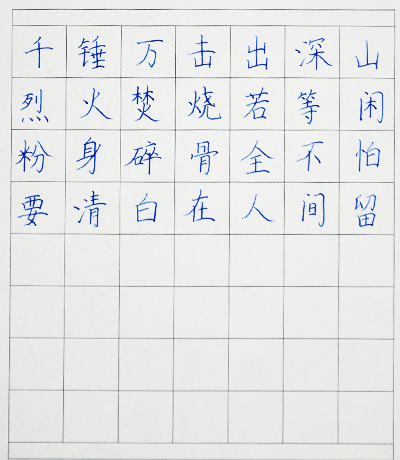 千锤万击出深山
烈火焚烧若等闲
粉身碎骨全不怕
要清白在人间留